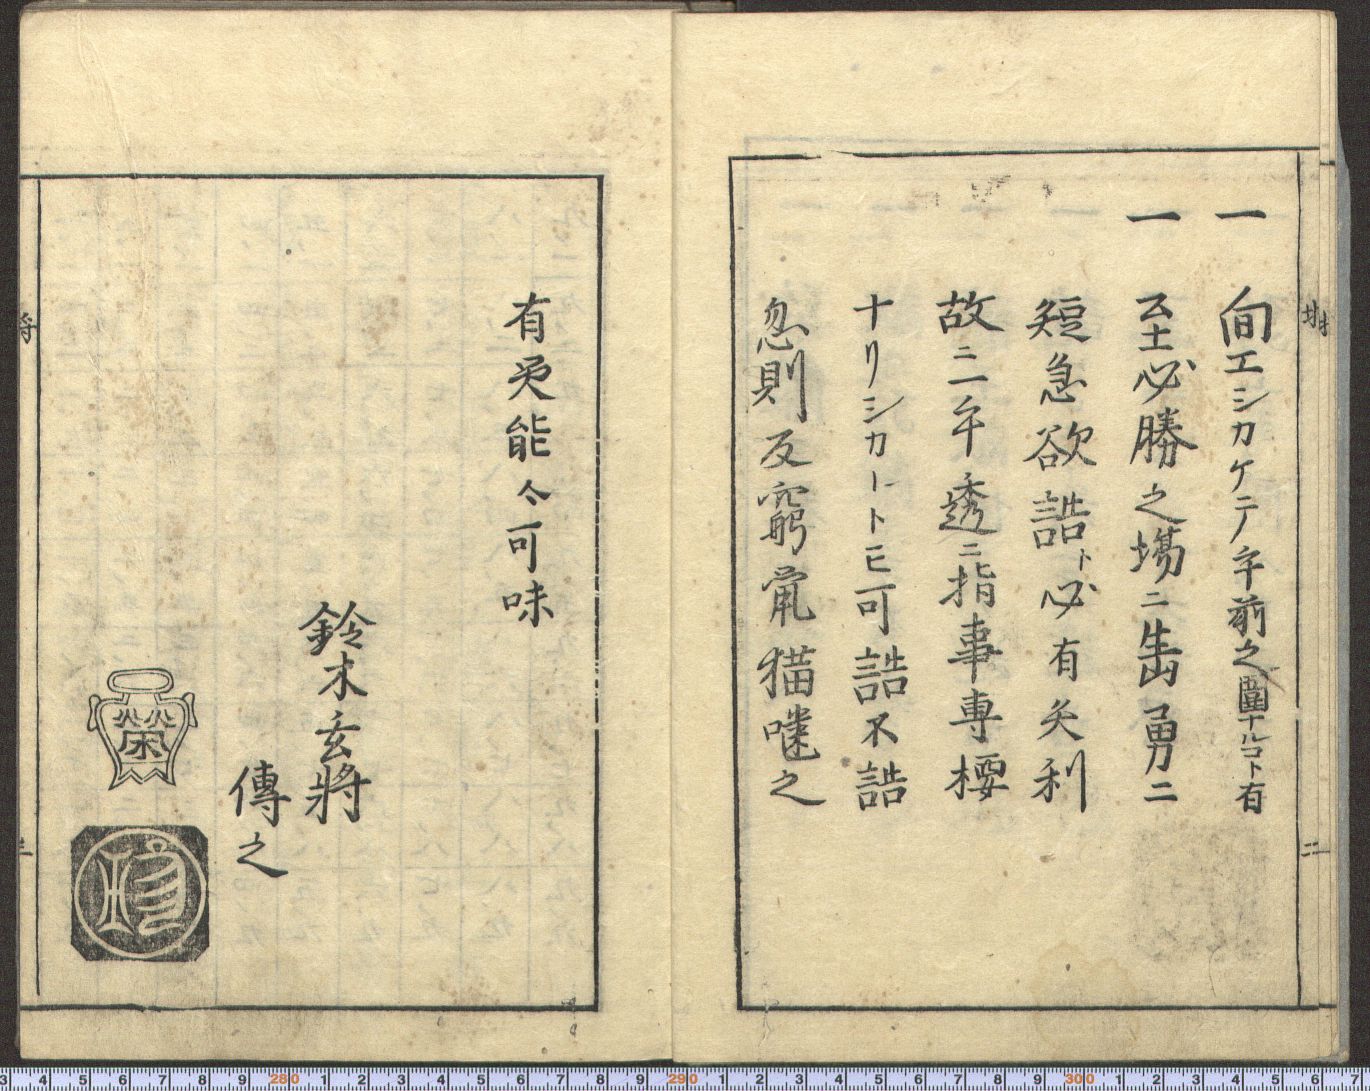 一 向エシカケテ手前之圍ナルコト有
一 至必勝之場ニ出勇ニ
短急欲詰ト必有失利
故ニ一手透ニ指事專楆
ナリシカ トモ可詰不詰
忽則反窮鼠猫噛之
有 能々可味
鈴木玄將
傳之
榮
二